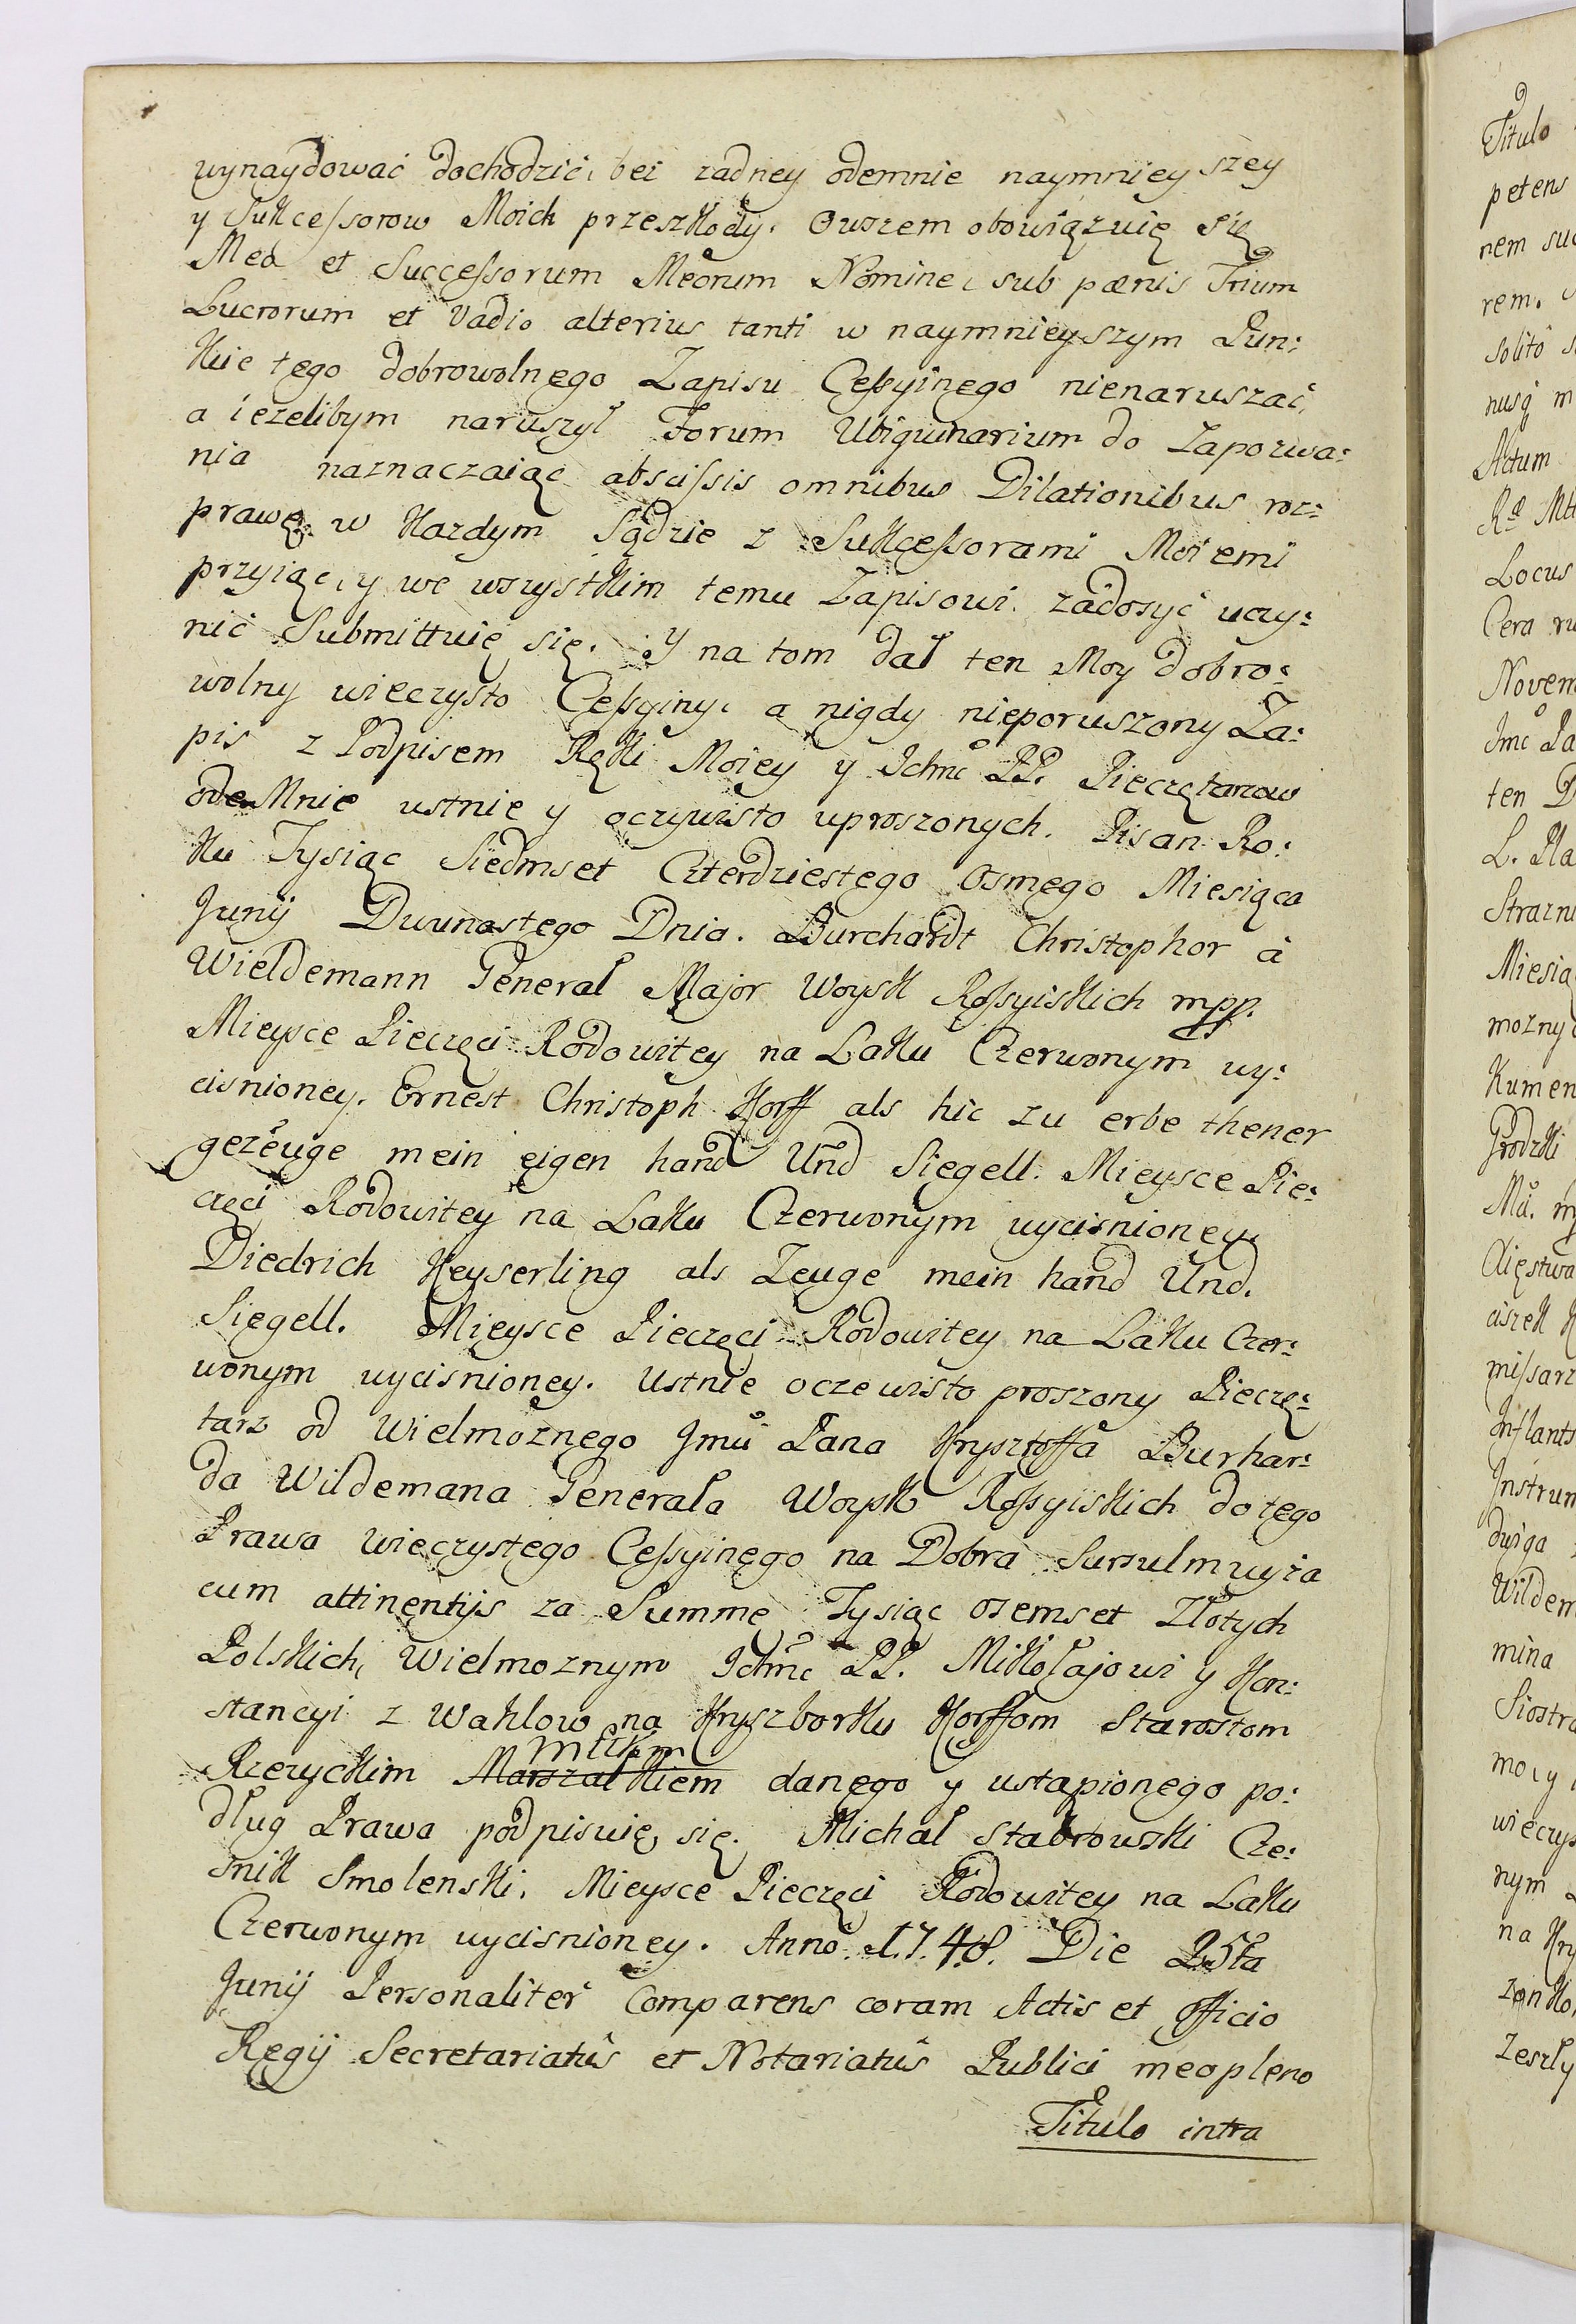 wynaydować dochodzić, bez zadney odemnie naymnieyszey
y Sukcessorow Moich przeszkody. Owszem obowiązuię się
Meo et Successorum Meorum Nomine, sub pœnis Trium
Lucrorum et Vadio alterius tanti w naymnieyszym Pun:
kcie tego dobrowolnego Zapisu Cessyinego nienaruszać,
a iezelibym naruszył Forum Ubiquinarium do Zapozwa:
nia naznaczaiąc abscissis omnibus Dilationibus roz:
prawę w kazdym Sądzie z Sukcessorami Moiemi
przyiąc, y we wszystkim temu Zapisowi zadosyć uczy:
nić Submittuię się. Y na tom dał ten Moy dobro:
wolny wieczysto Cessyiny, a nigdy nieporuszony Za:
pis z Podpisem Ręki Moiey y Ichmc PP. Pieczętarzow
ode Mnie ustnie y oczywisto uproszonych. Pisan Ro:
ku Tysiąc Siedmset Czterdziestego Osmego Miesiąca
Junij Dwunastego Dnia. Burchardt Christophor à
Wieldemann General Major Woysk Rossyiskich mpp.
Mieysce Pieczęci Rodowitey na Laku Czerwonym wy:
cisnioney. Ernest Christoph Korff als hic zu erbe thener
gezeuge mein eigen hand Und Siegell. Mieysce Pie:
częci Rodowitey na Laku Czerwonym wycisnioney.
Diedrich Keyserling als Zeuge mein hand Und.
Siegell. Mieysce Pieczęci Rodowitey na Laku Czer:
wonym wycisnioney. Ustnie oczewisto proszony Pieczę:
tarz od Wielmoznego Jmu Pana Krysztoffa Burhar:
da Wildemana Generała Woysk Rossyiskich do tego
Prawa Wieczystego Cessyinego na Dobra Sursulmuyza
cum attinentijs za Summę Tysiąc osemset Złotych
Polskich, Wielmoznym Ichmc PP. Mikołajowi y Kon:
stancyi z Wahlow na Kryszborku Korffom Starostom
Rzeczyckim Marszałkiem danego y ustąpionego po:
dług Prawa podpisuię się. Michał Stabrowski Cze:
snik Smolenski. Mieysce Pieczęci Rodowitey na Laku
Czerwonym wycisnioney. Anno 1748. Die 25ta
Junij Personaliter Comparens coram Actis et Officio
Regij Secretariatûs et Notariatûs Publici meo pleno
Titulo intra
Titulo
petens
nem suc
rem.
solito
nusq m
Actum
Locus
Cera ru
Novem
Jmc Pa
ten D
L. Pla
Strazni
Miesią
mozny
Kumen
Grodzki
xięstwa
ciszek K
missarz
Inflants
Instrum
dwiga
Wildem
mina
Siostra
mocy
wieczys
nym
na Kry
zeszły